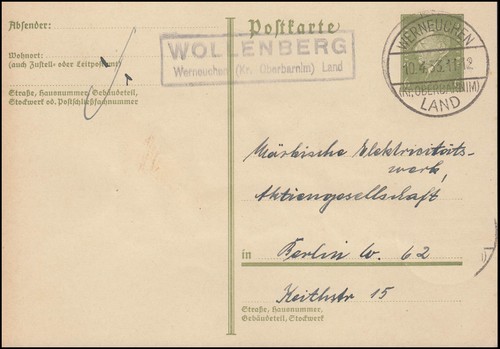 Absender:
Wohnort:
(auch Zustell- oder Leitpostamt)
Straße, Hausnummer, Gebäudeteil,
Stockwerk od. Postschließfachnummer
Postkarte
WOLLENBERG
Werneuchen (Kr. Oberbarnim) Land
WERNEUCHEN
10.4.33.11-12
(Kr. OBERBARNIM)
LAND
Märkische Elektricitäts-
werk,
Aktiengesellschaft
in Berlin W. 62
Keithstr 15
Straße, Hausnummer,
Gebäudeteil, Stockwerk